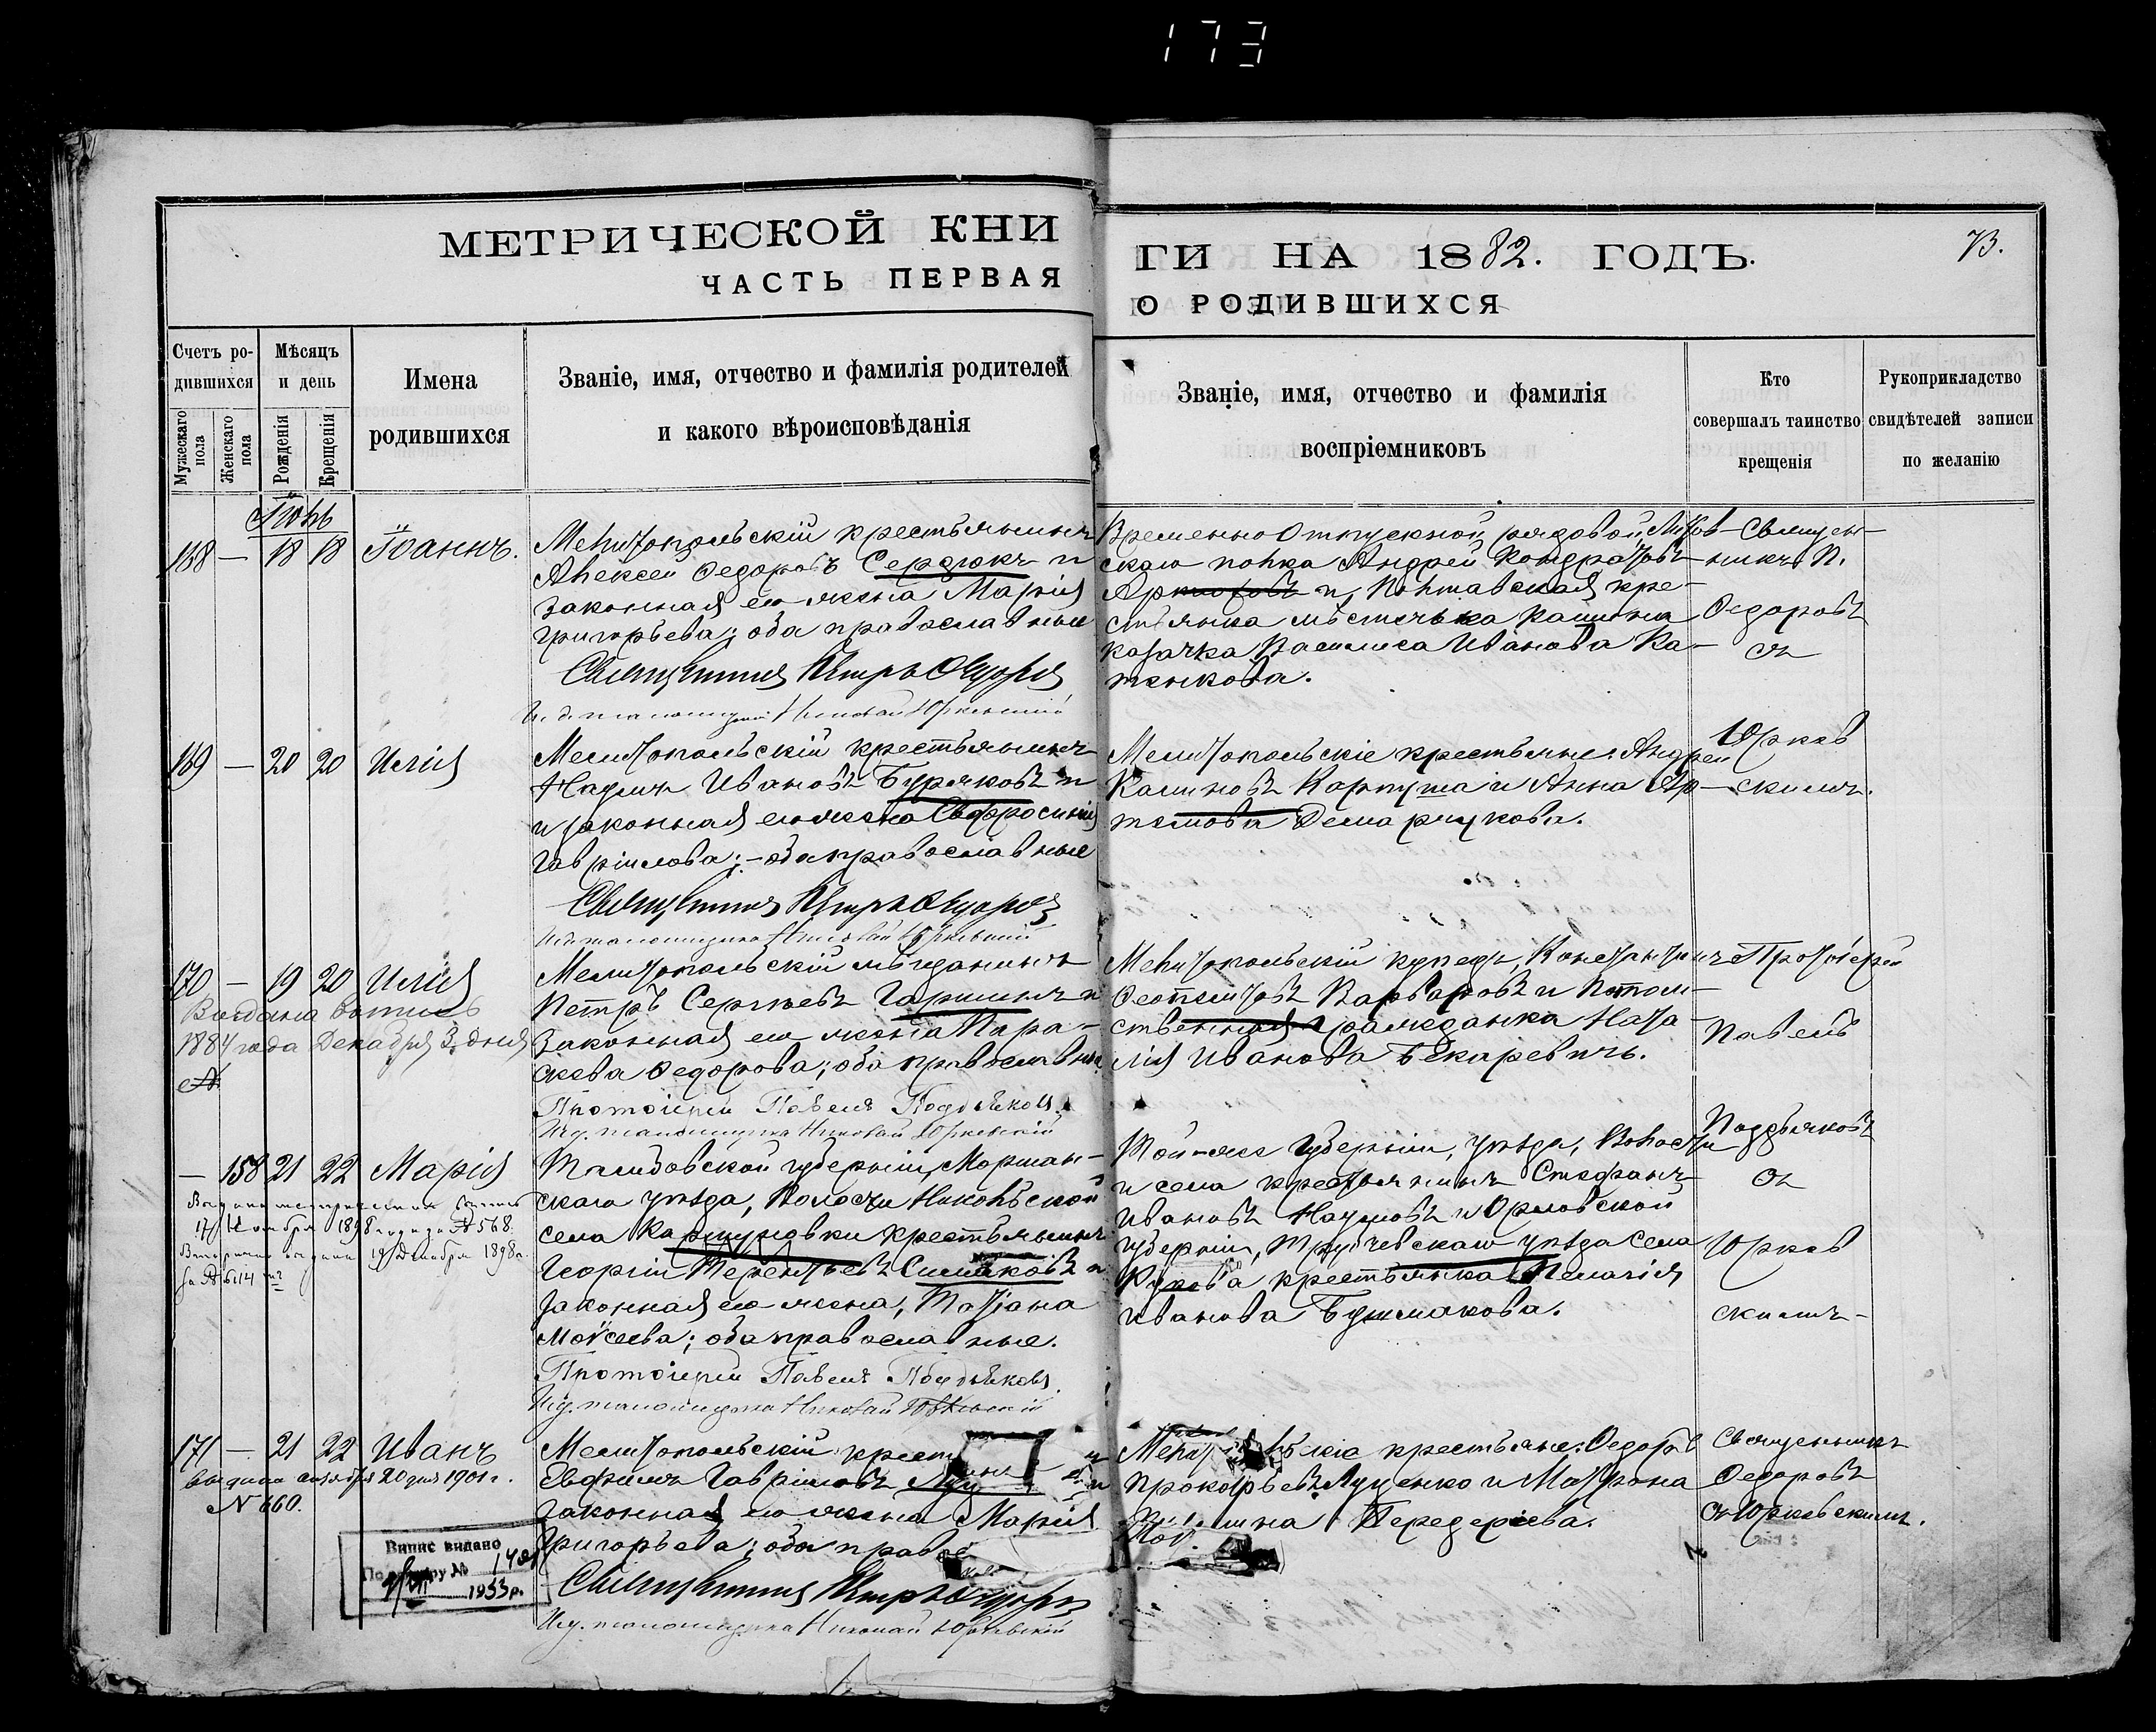 173
МЕТРИЧЕСКОЙ КНИ
ЧАСТЬ ПЕРВАЯ
ГИ НА 1882. ГОДЪ.
О РОДИВШИХСЯ
73.
Счетъ ро-
дившихся
Мужескаго
пола
Женскаго
пола
Мѣсяцъ
и день
Рожденія
Крещенія
Имена
родившихся
Званіе, имя, отчество и фамилія родителей
и какого вѣроисповѣданія
Званіе, имя, отчество и фамилія
воспріемниковъ
Кто
совершалъ таинство
крещенія
Рукоприкладство
свидѣтелей записи
по желанію
168 — 18 18 Іоаннъ.
Мелитопольскій крестьянинъ
Алексей Ѳедоровъ Сердюкъ и
законная его жена Марія
Григорьева; оба православные
Священникъ Петръ Ѳедоровъ
Временно отпускной рядовой
скаго полка Андрей Кондратовъ
и Полтавская кре-
стьянка мѣстечка
козачка Василиса Иванова Ка-
тенкова.
Священ-
никъ П.
Ѳедоровъ
съ
169 — 20 20 Илія
Мелитопольскій крестьянинъ
Наумъ Ивановъ Буряковъ и
и законная его жена Евфросинія
Гавріилова; — оба православные
Священникъ Петръ Ѳедоровъ
Мелитопольскіе крестьяне: Андрей
Калиновъ Карпуша и Анна Ар-
темова
Юркев
скимъ.
170 — 19 20 Илія
Выдана выпись
1884 года Декабря 3 дня
№
Мелитопольскій мѣщанинъ
Петръ Сергѣевъ Гаршинъ и
Законная его жена Пара-
скева Ѳедорова; оба православные
Протоіерей Павелъ Поддьяковъ
И.д. псаломщика Николай Юркевскій
Мелитопольскій купецъ, Константинъ
Ѳеопемтовъ Варваровъ и Потом-
ственная гражданка Ната-
лія Иванова Бекаревичъ.
Протоіерей
Павелъ
Поддьяковъ
съ
— 158 21 22 Марія
Выдана метрическая выпись
17 Ноября 1898 года за № 568.
Вторично выдана 19 Декабря 1898 г.
за № 614
Тамбовской губерніи, Моршан-
скаго уѣзда, Волости Никольской
села Каршуновки крестьянинъ
Георгій Терентьевъ Симаковъ и
законная его жена, Татіана
Моисеева; оба православные.
Протоіерей Павелъ Поддьяковъ
И.д. псаломщика Николай Юркевскій
Той-же Губерніи, уѣзда, Волости
и села крестьянинъ Стефанъ
Ивановъ Наумовъ и Орловской
губерніи, Трубчевскаго уѣзда села
крестьянка Пелагія
Иванова Бушмакова.
Юркев
скимъ-
171 — 21 22 Иванъ
выдана 20 дня 1901 г.
N 660.
Випис видано
1933 р.
Мелитопольскій крест
Евфимъ Гавріиловъ
законная его жена Марія
Григорьева; оба прав
Священникъ Петръ Ѳедоровъ
И.д. псаломщика Николай Юркевскій
крестьяне: Ѳедоръ
Прокофьевъ Луценко и Матрона
Передеріева.
Священникъ
Ѳедоровъ
съ Юркевскимъ.